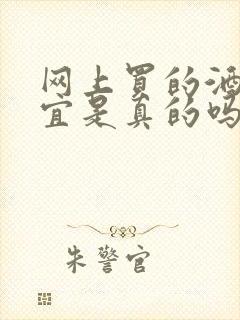 网上買的酒
宜是真的吗
朱警官